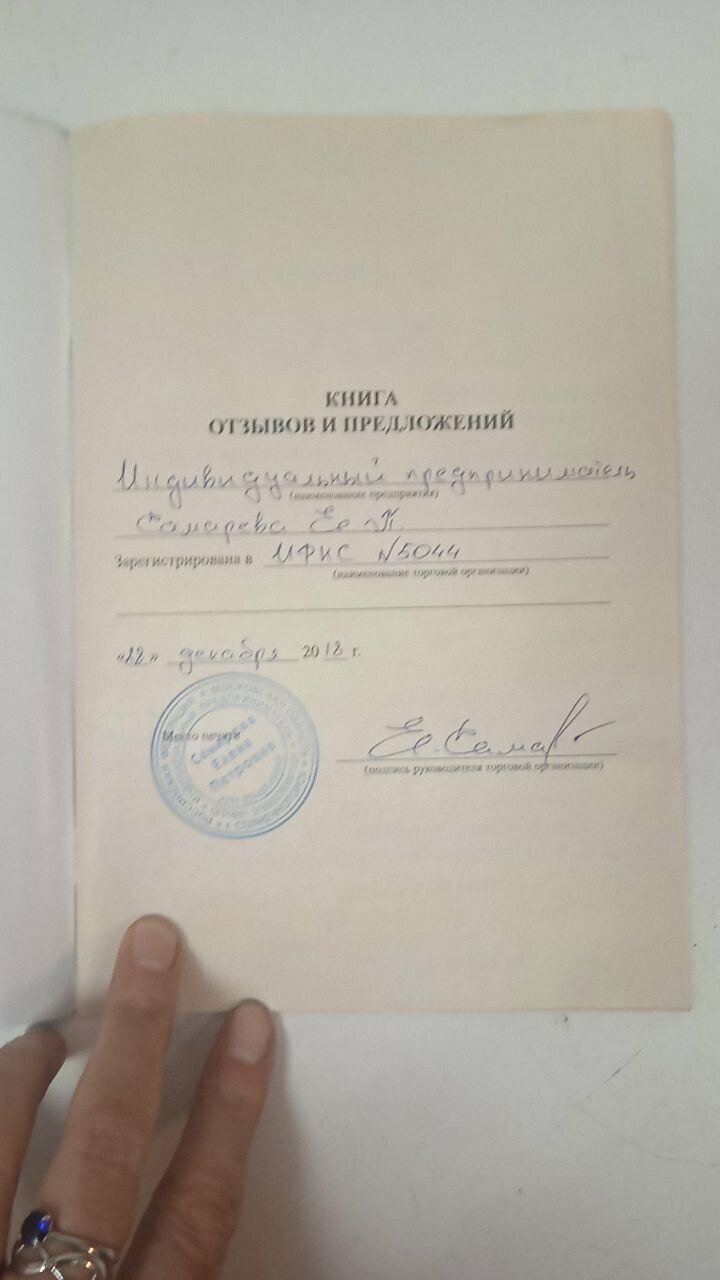 КНИГА
ОТЗЫВОВ И ПРЕДЛОЖЕНИЙ
Индивидуальный предприниматель
(наименование предприятия)
Самарева Е. П.
Зарегистрирована в ИФНС №5044
(наименование торговой организации)
декабря 2018 г.
МОСКОВСКАЯ ОБЛАСТЬ
Место печати
Елена
Петровна
Е. Сама
(подпись руководителя торговой организации)